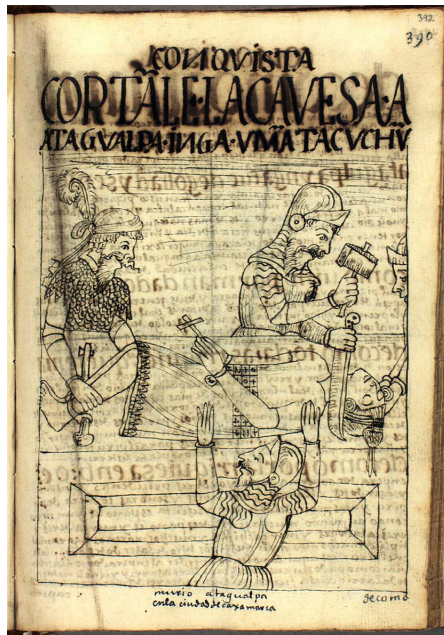 392
390
CONQVISTA
CORTÃLE·LACAVESA·A
ATAGVALPA·INGA·VMÃTACVCHṼ
murio atagualpa
enla ciudad de caxamarca
de como